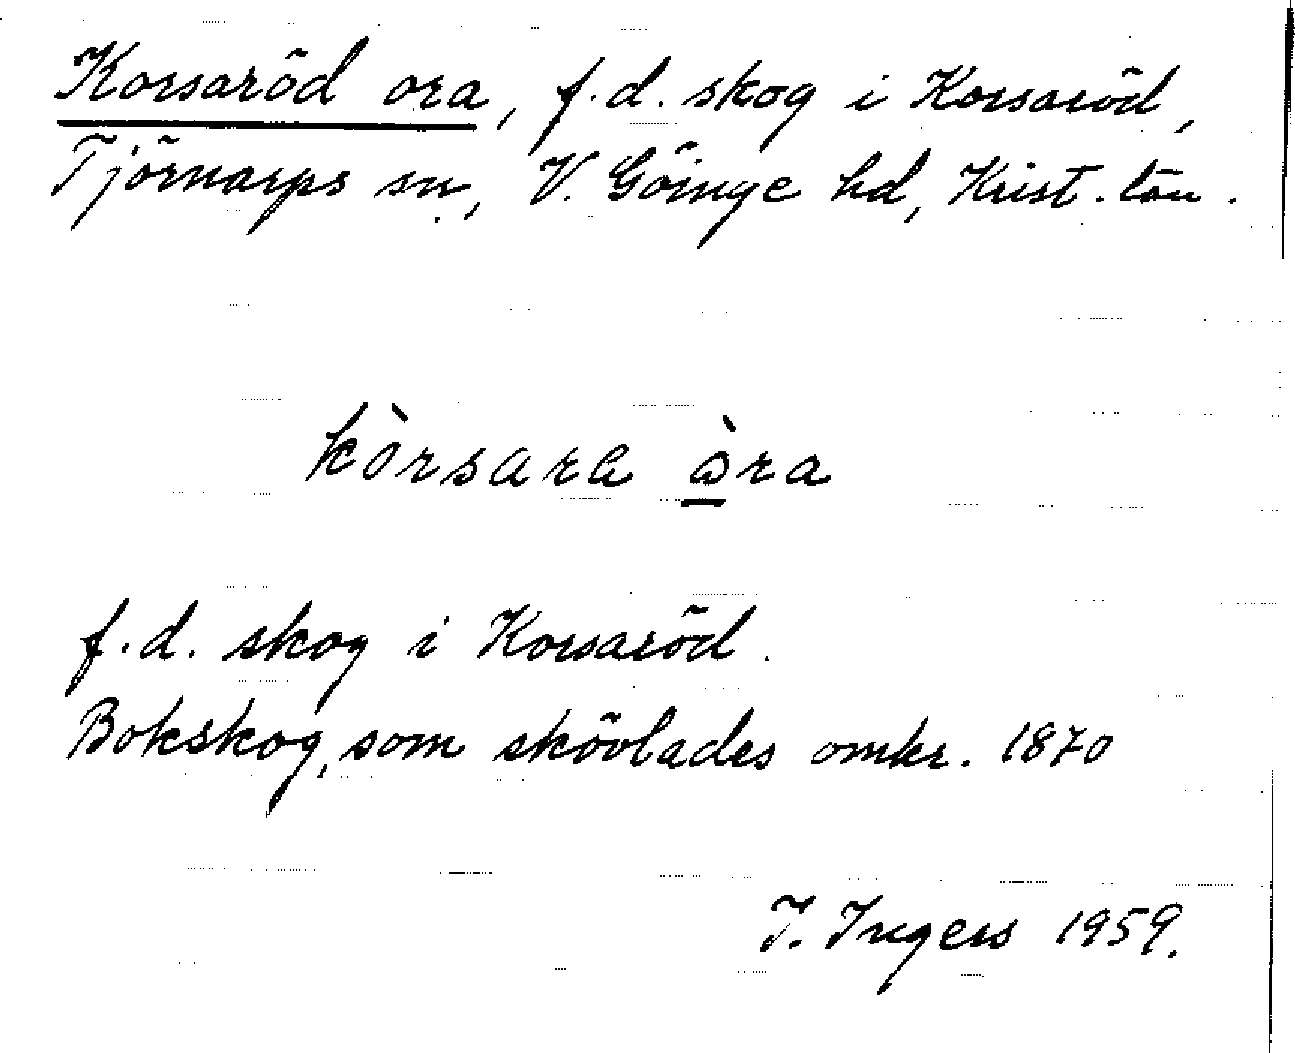 Korsaröd ora, f.d. skog i Korsaröd,
Tjörnarps sn, V. Göinge hd, Krist. län.
kòrsara òra
f.d. skog i Korsaröd.
Bokskog, som skövlades omkr. 1870
I. Ingers 1959.